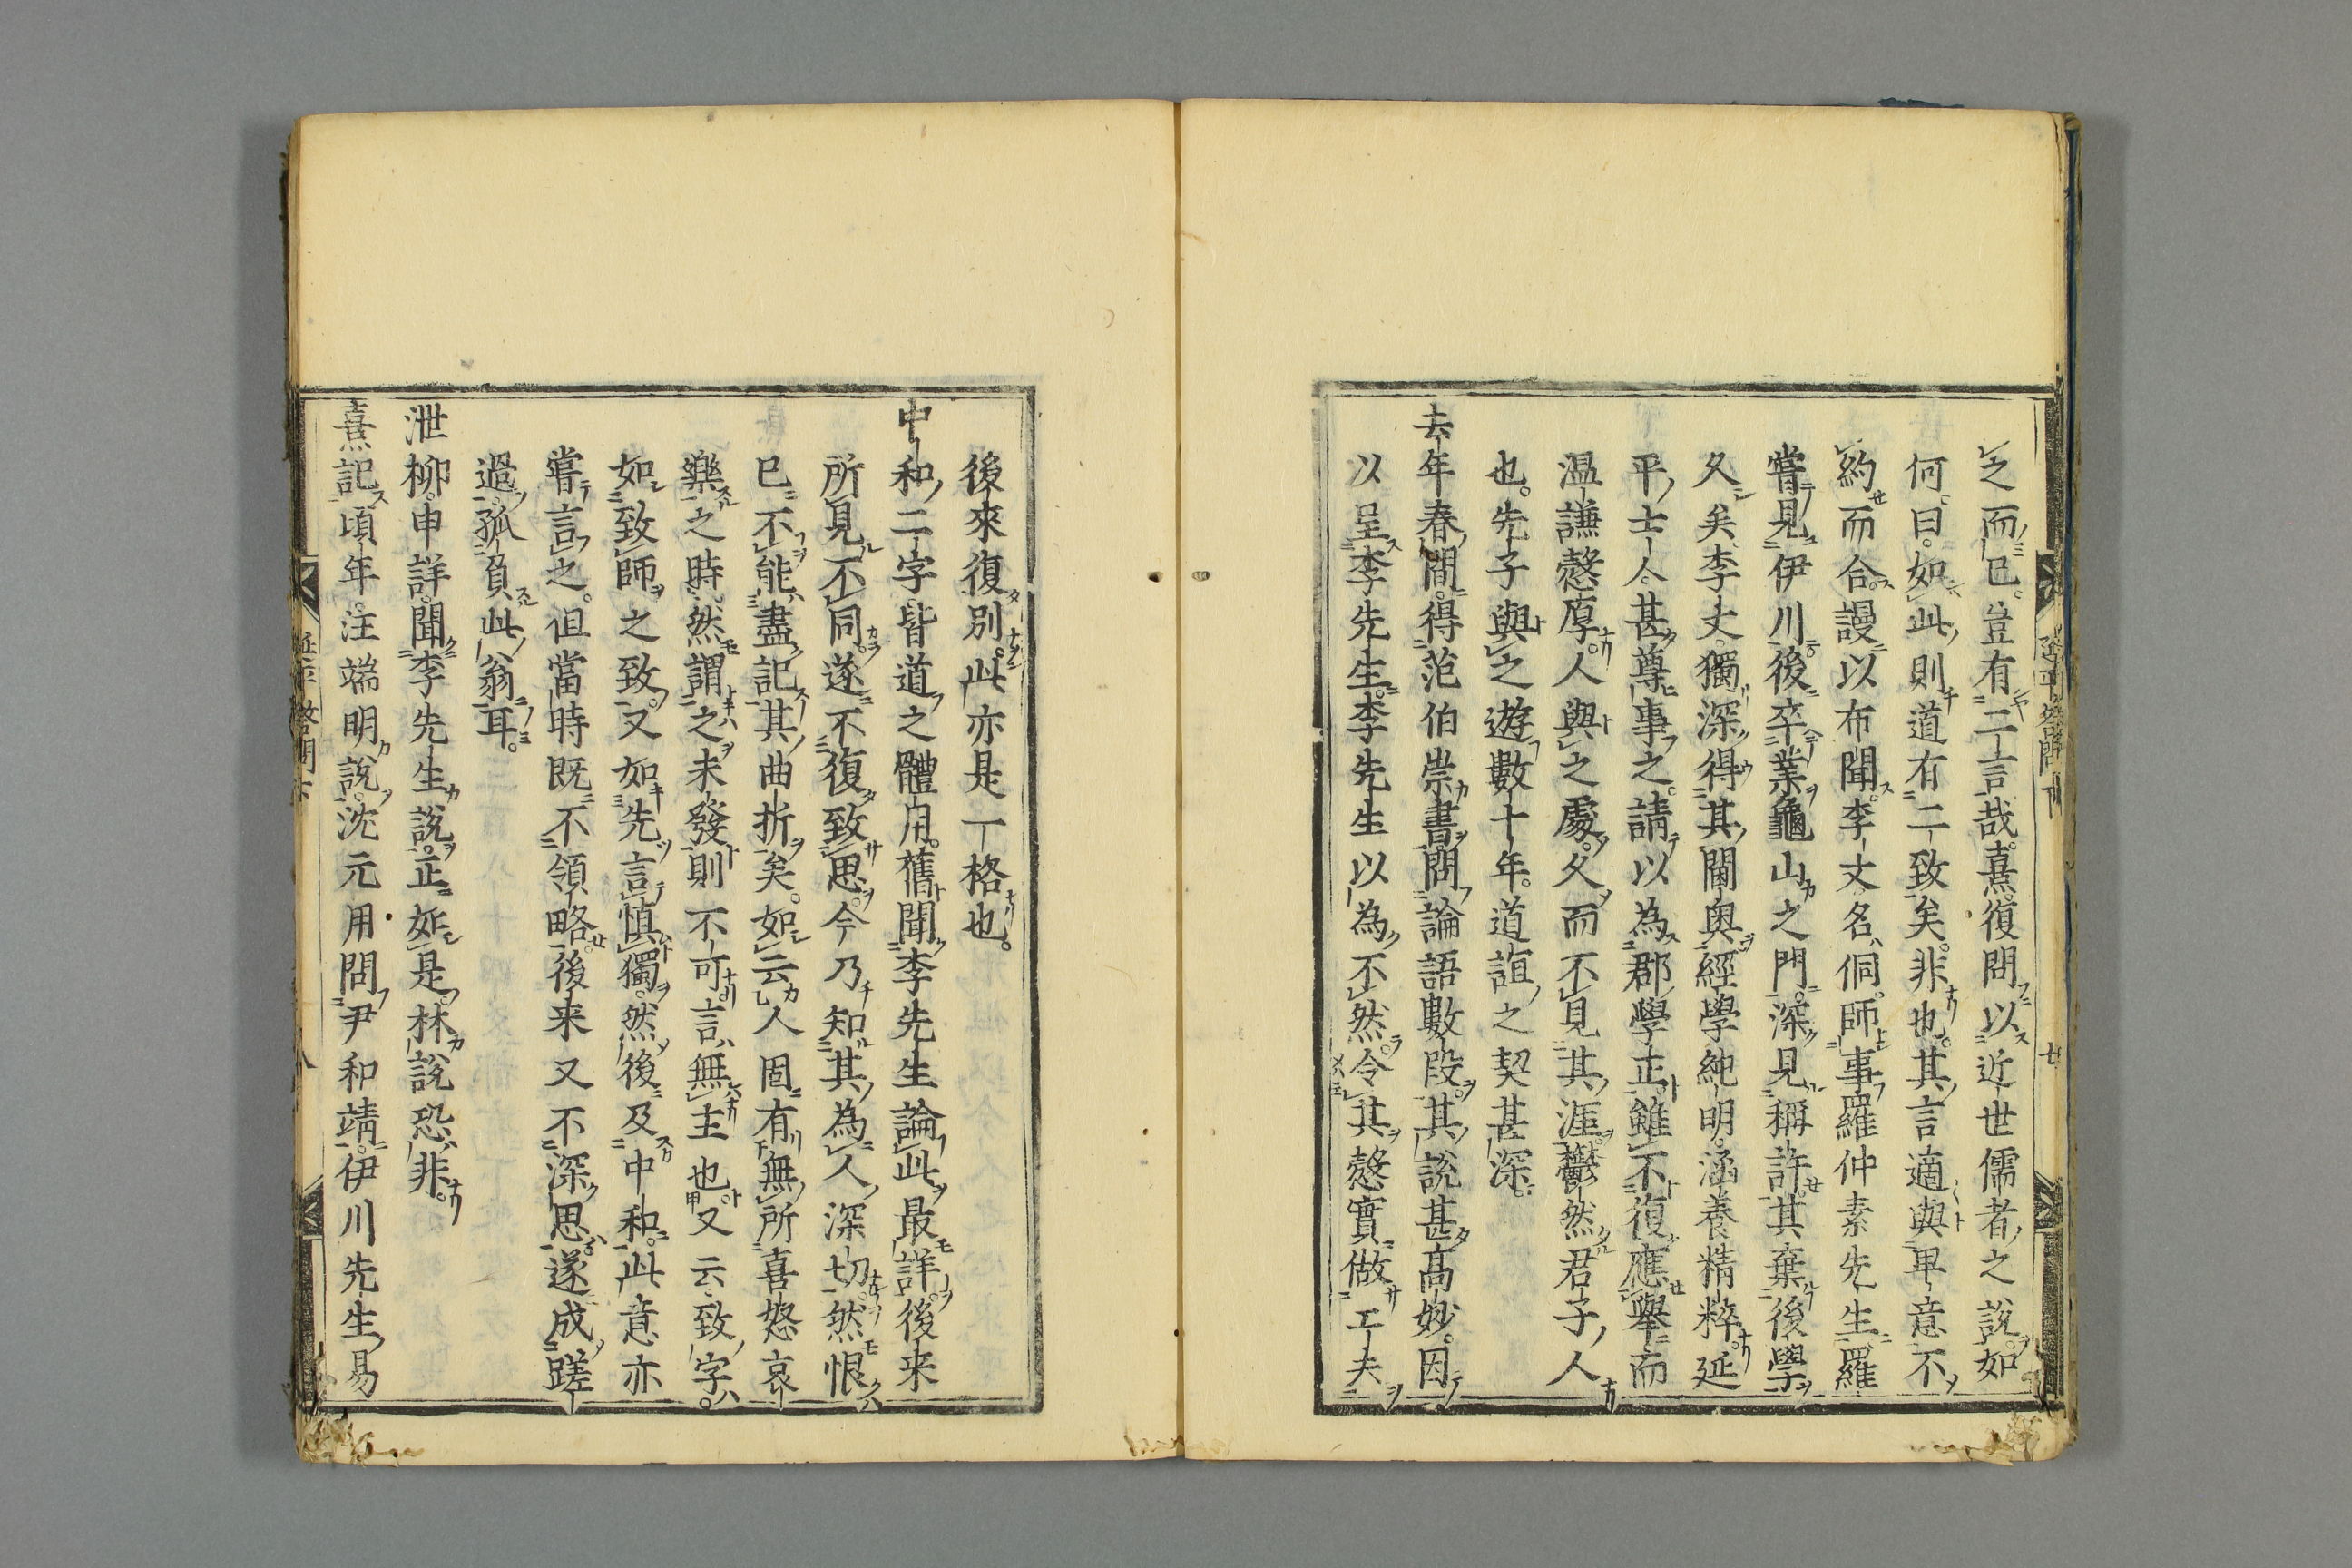 之而已。豈有二言哉。熹復問以近世儒者之說。如
何。曰。如此則道有二致矣。非也。其言適與卑意不
約而合。謾以布聞。李丈名侗。師事羅仲素先生。羅
嘗見伊川。後卒業龜山之門。深見稱許。其棄後學
久矣。李丈獨深得其閫奧。經學純明。涵養精粹。延
平士人甚尊事之。請以為郡學正。雖不復應舉。而
温謙慤厚。人與之處。久而不見其涯。鬱然君子人
也。先子與之遊數十年。道誼之契甚深。
去年春間。得范伯崇書。問論語數段。其說甚高妙。因
以呈李先生。李先生以為不然。令其慤實做工夫
後來復別。此亦是一格也。
中和二字。皆道之體用。舊聞李先生論此最詳。後来
所見不同。遂不復致思。今乃知其為人深切。然恨
已不能盡記其曲折矣。如云人固有無所喜怒哀
樂之時。然謂之未發。則不可言無主也。又云致字。
如致師之致。又如先言慎獨。然後及中和。此意亦
嘗言之。但當時既不領略。後来又不深思。遂成蹉
過。孤負此翁耳。
泄柳。申詳。聞李先生說。正如是。林說恐非。
熹記頃年。汪端明說。沈元用問尹和靖。伊川先生易